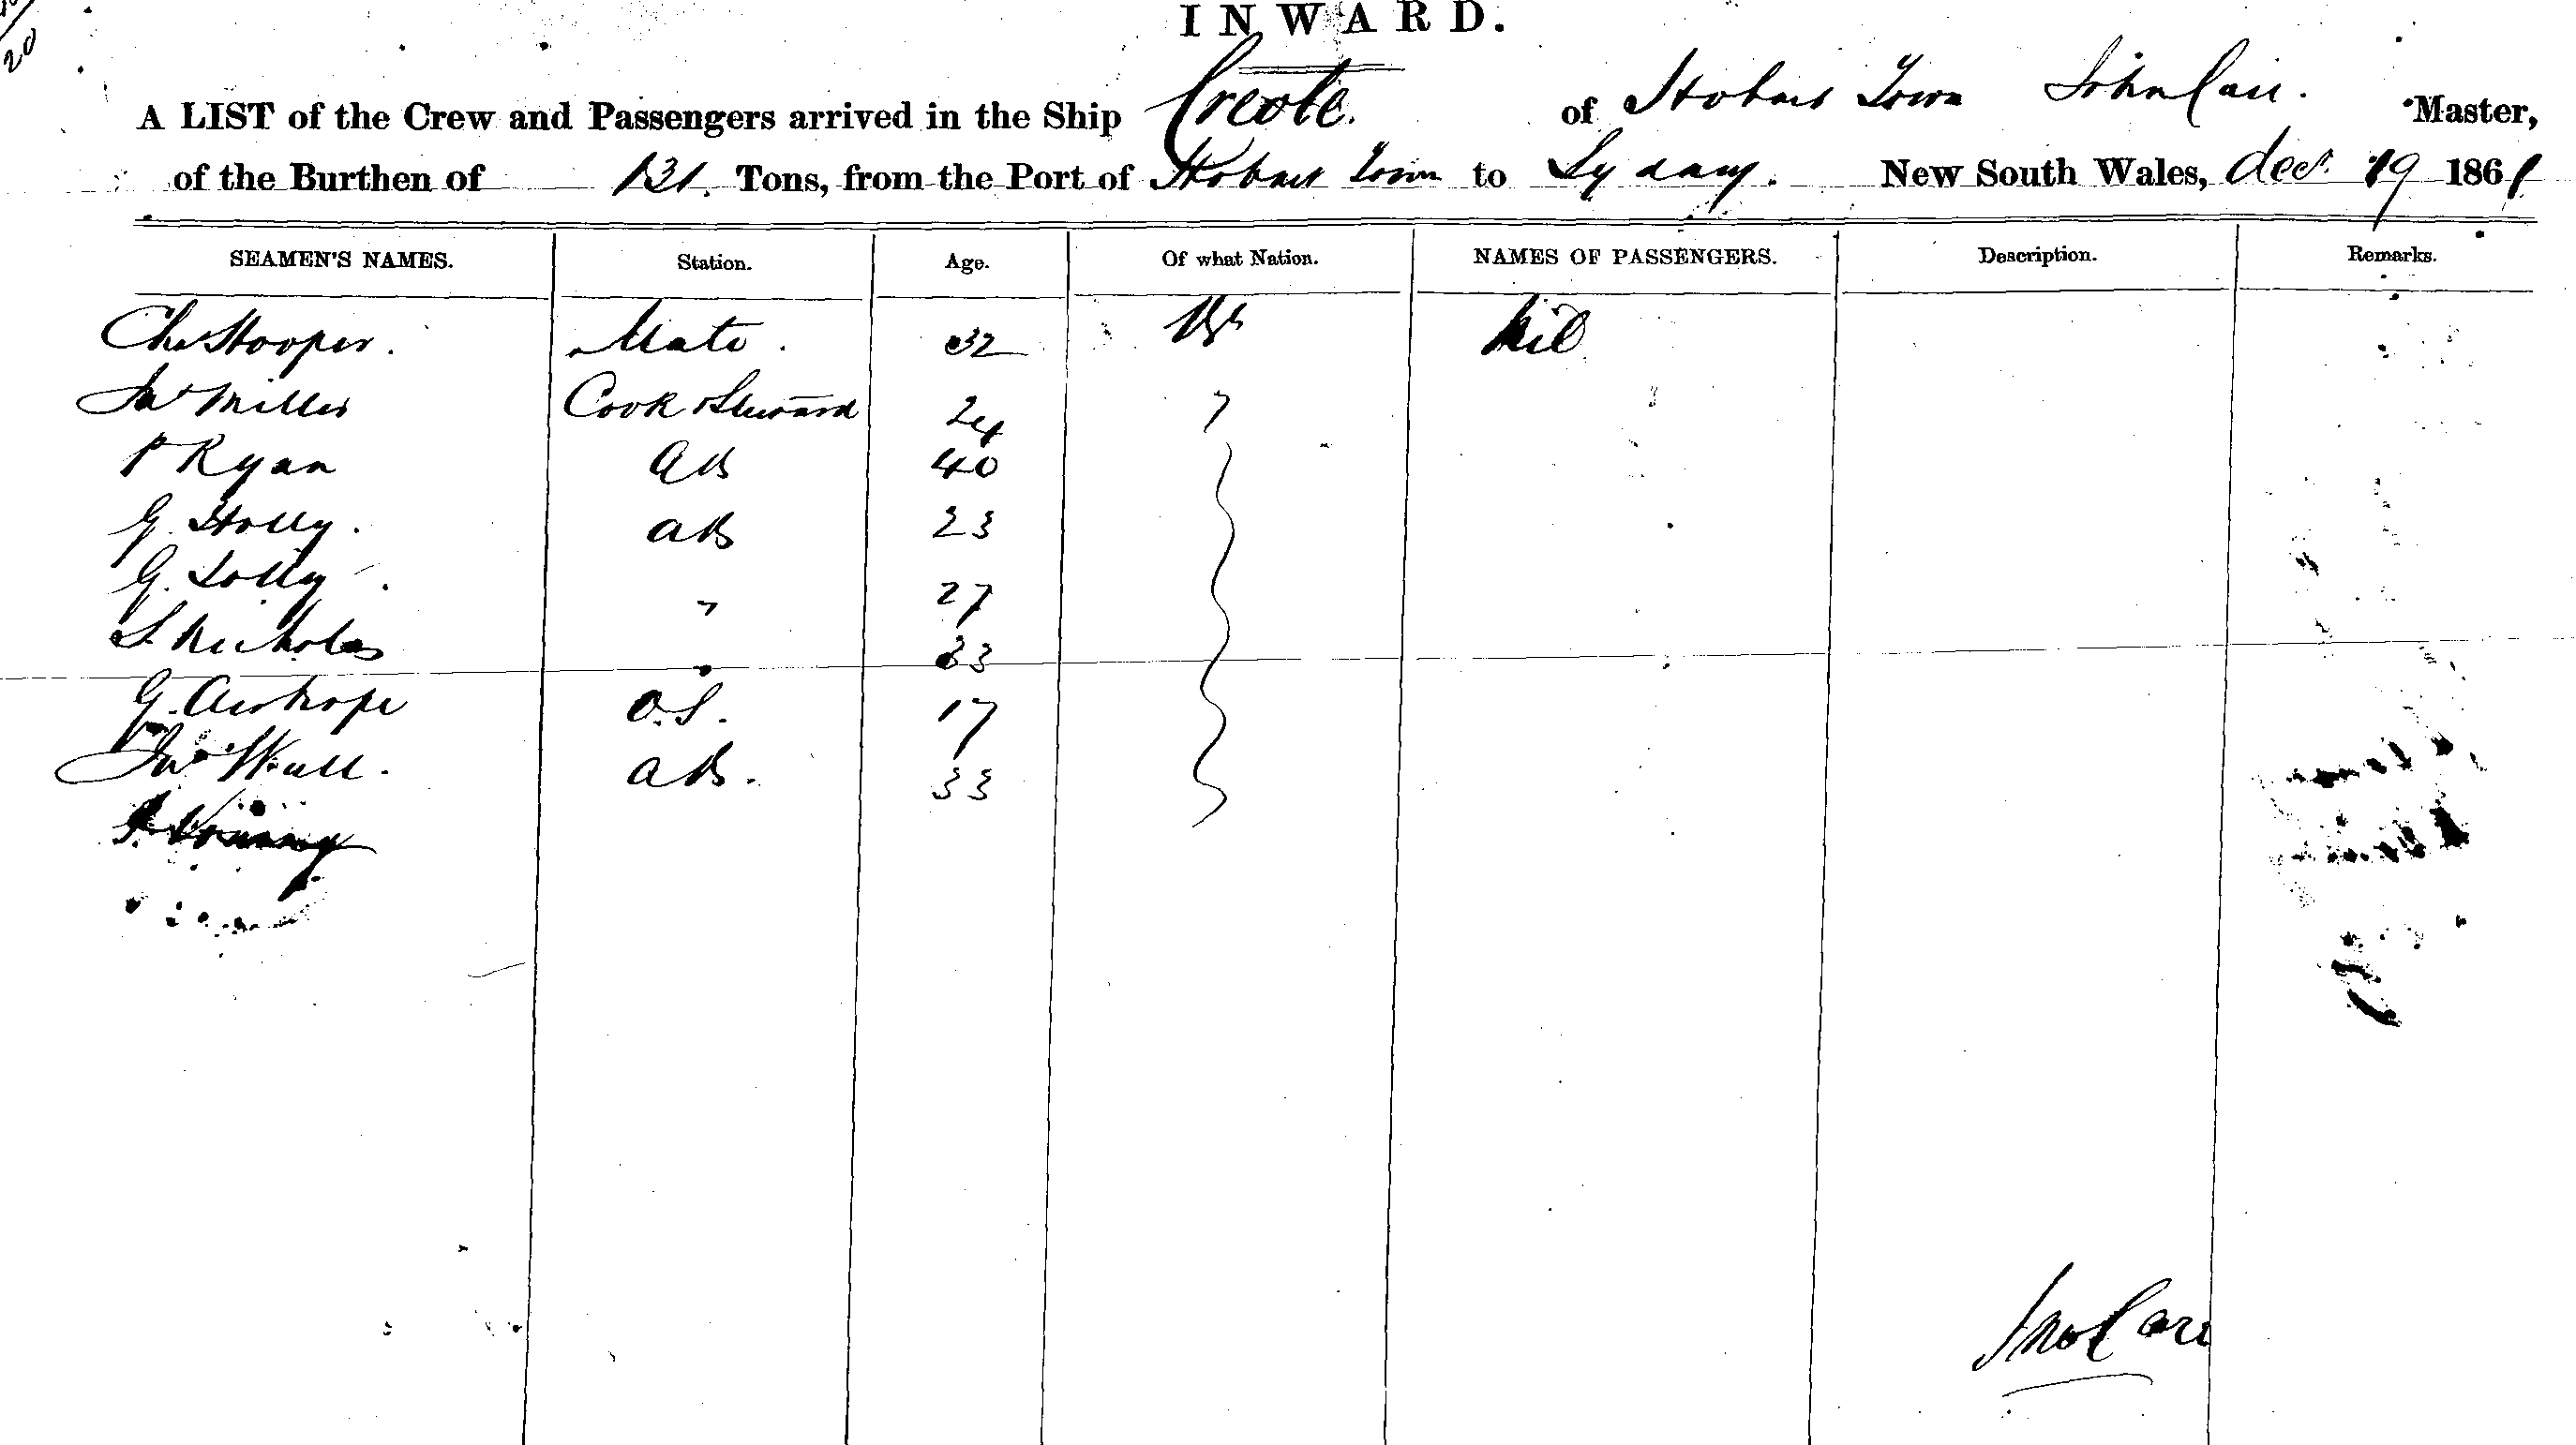 20
INWARD.
A LIST of the Crew and Passengers arrived in the Ship Creole. of Hobart Town John Carr. Master,
of the Burthen of 131. Tons, from the Port of Hobart Town to Sydney. New South Wales, Decr. 19 1861
SEAMEN'S NAMES. Station. Age. Of what Nation. NAMES OF PASSENGERS. Description. Remarks.
Chs Hooper. Mate. 32 Nil
Jno Miller Cook & Steward 24 "
P Ryan AB 40
G. Holly. AB 23
G. Lolly. " 27
S. Nicholas " 33
G. O.S. 17
Jno Wall. AB. 33
Young
Jno Carr